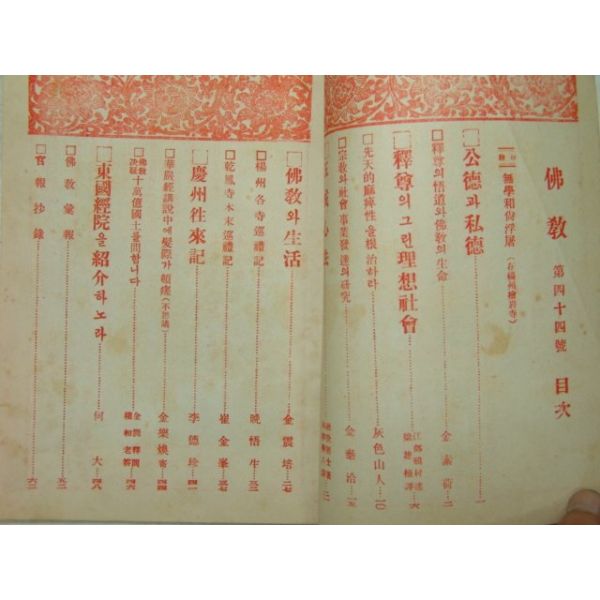 佛敎 第四十四號 目次
無學和尙浮屠(在楊州檜岩寺)
□公德과私德……金素荷…二
□釋尊의悟道와佛敎의生命
□釋尊의그린理想社會……六
□先天的麻痺性을根治하라……灰色山人…一〇
□宗敎와社會事業發達의硏究……金泰洽…一五
□佛敎와生活……金震培…二七
□楊州各寺巡禮記……晩悟生…三三
□乾鳳寺本末巡禮記……崔金峯…三七
□慶州往來記……李德珍…四一
□華嚴經講說中에髮際가頓瘥(不思議)……金樂煥寄…四四
□佛敎決疑 十萬億國土를問합니다……四六
□東國經院을紹介하노라……何大…四八
□佛敎彙報……五二
□官報抄錄……六二